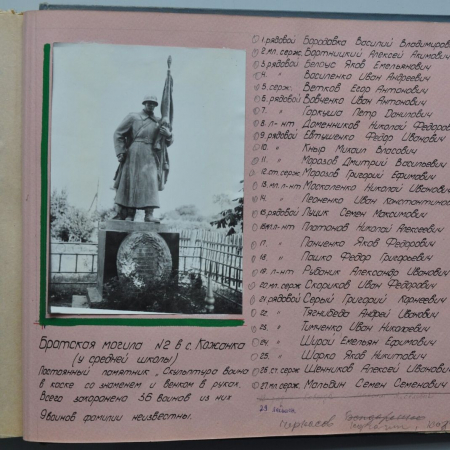 1. рядовой Бородавка Василий Владимирови
2. мл. серж. Бортницкий Алексей Акимович
3. рядовой Белоус Яков Емельянович
4. " Василенко Иван Андреевич
5. серж. Ветков Егор Антонович
6. рядовой Вовченко Иван Антонович
7. " Гаркуша Петр Данилович
8. л-нт Доменников Николай Федоров
9. рядовой Евтушенко Федор Иванович
10. " Кныр Михаил Власович
11. " Морозов Дмитрий Васильевич
12. ст. серж. Морозов Григорий Ефимович
13. мл. л-нт Москаленко Николай Иванович
14. " Леоненко Иван Константинов
15. рядовой Луцик Семен Максимович
16. мл. л-нт Платонов Николай Алексеевич
17. " Панченко Яков Федорович
18. " Пашко Федор Григорьевич
19. л-нт Рубаник Александр Иванович
20. мл. серж. Скориков Иван Федорович
21. рядовой Серый Григорий Корнеевич
22. " Тягнибеда Андрей Иванович
23. " Тимченко Иван Николаевич
24. " Ширай Емельян Ефимович
25. " Шарко Яков Никитович
26. ст. серж. Шенников Алексей Иванович
27. мл. серж. Мальвин Семен Семенович
Братская могила №2 в с. Кожанка
(у средней школы)
Постоянный памятник „Скульптура воина
в каске со знаменем и венком в руках.
Всего захоронено 36 воинов из них
9 воинов фамилии неизвестны.